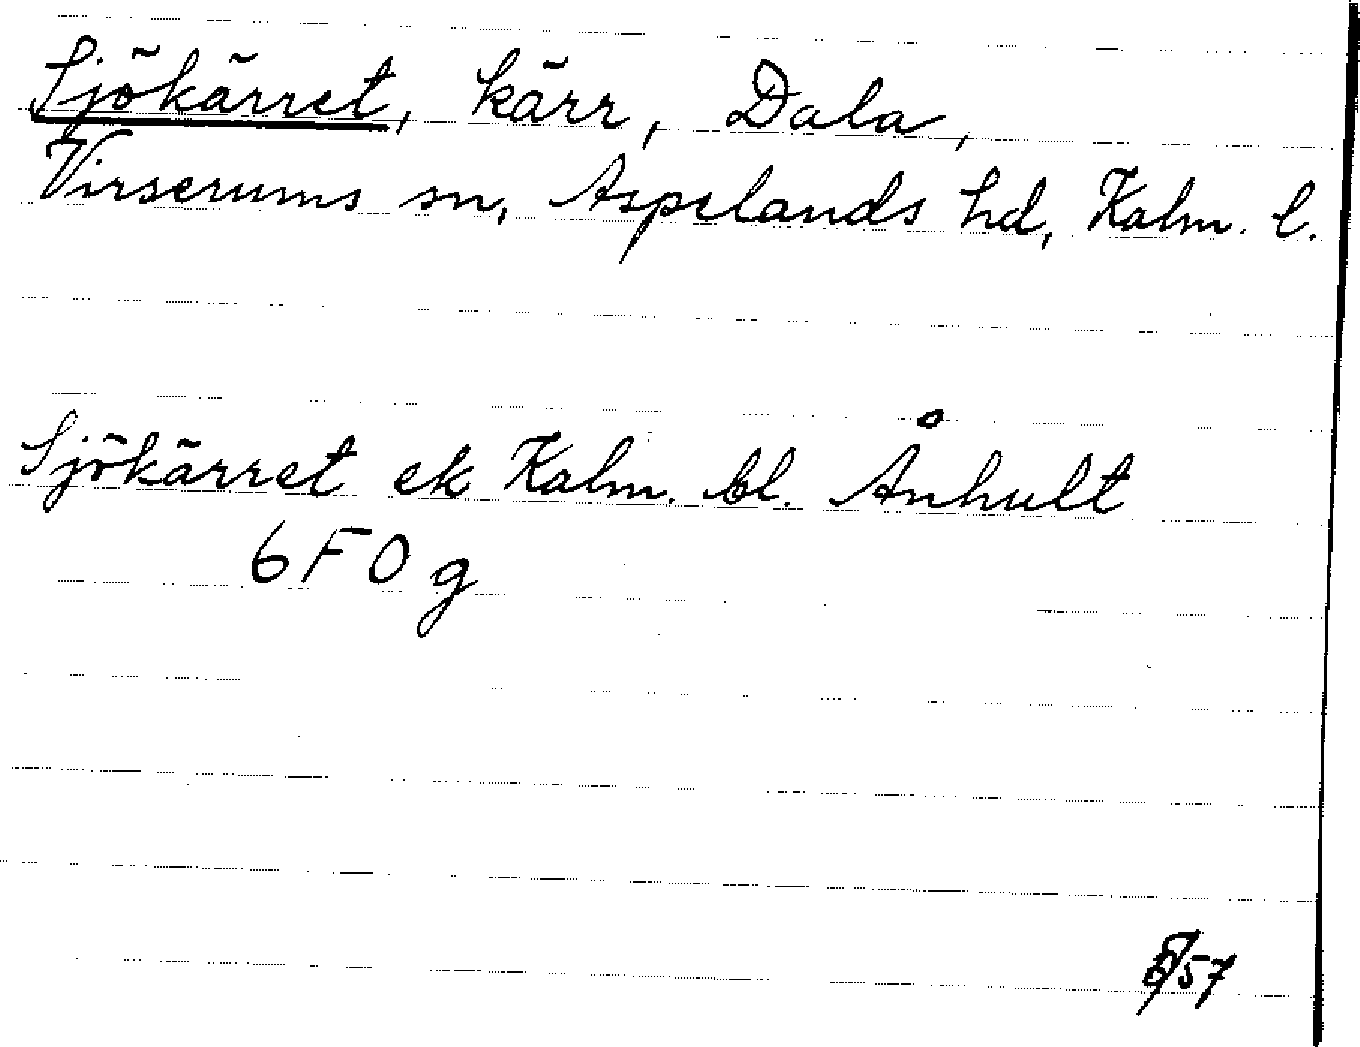 Sjökärret, kärr, Dala,
Virserums sn, Aspelands hd, Kalm. l.
Sjökärret ek Kalm. bl. Ånhult
6 F 0 g
/57